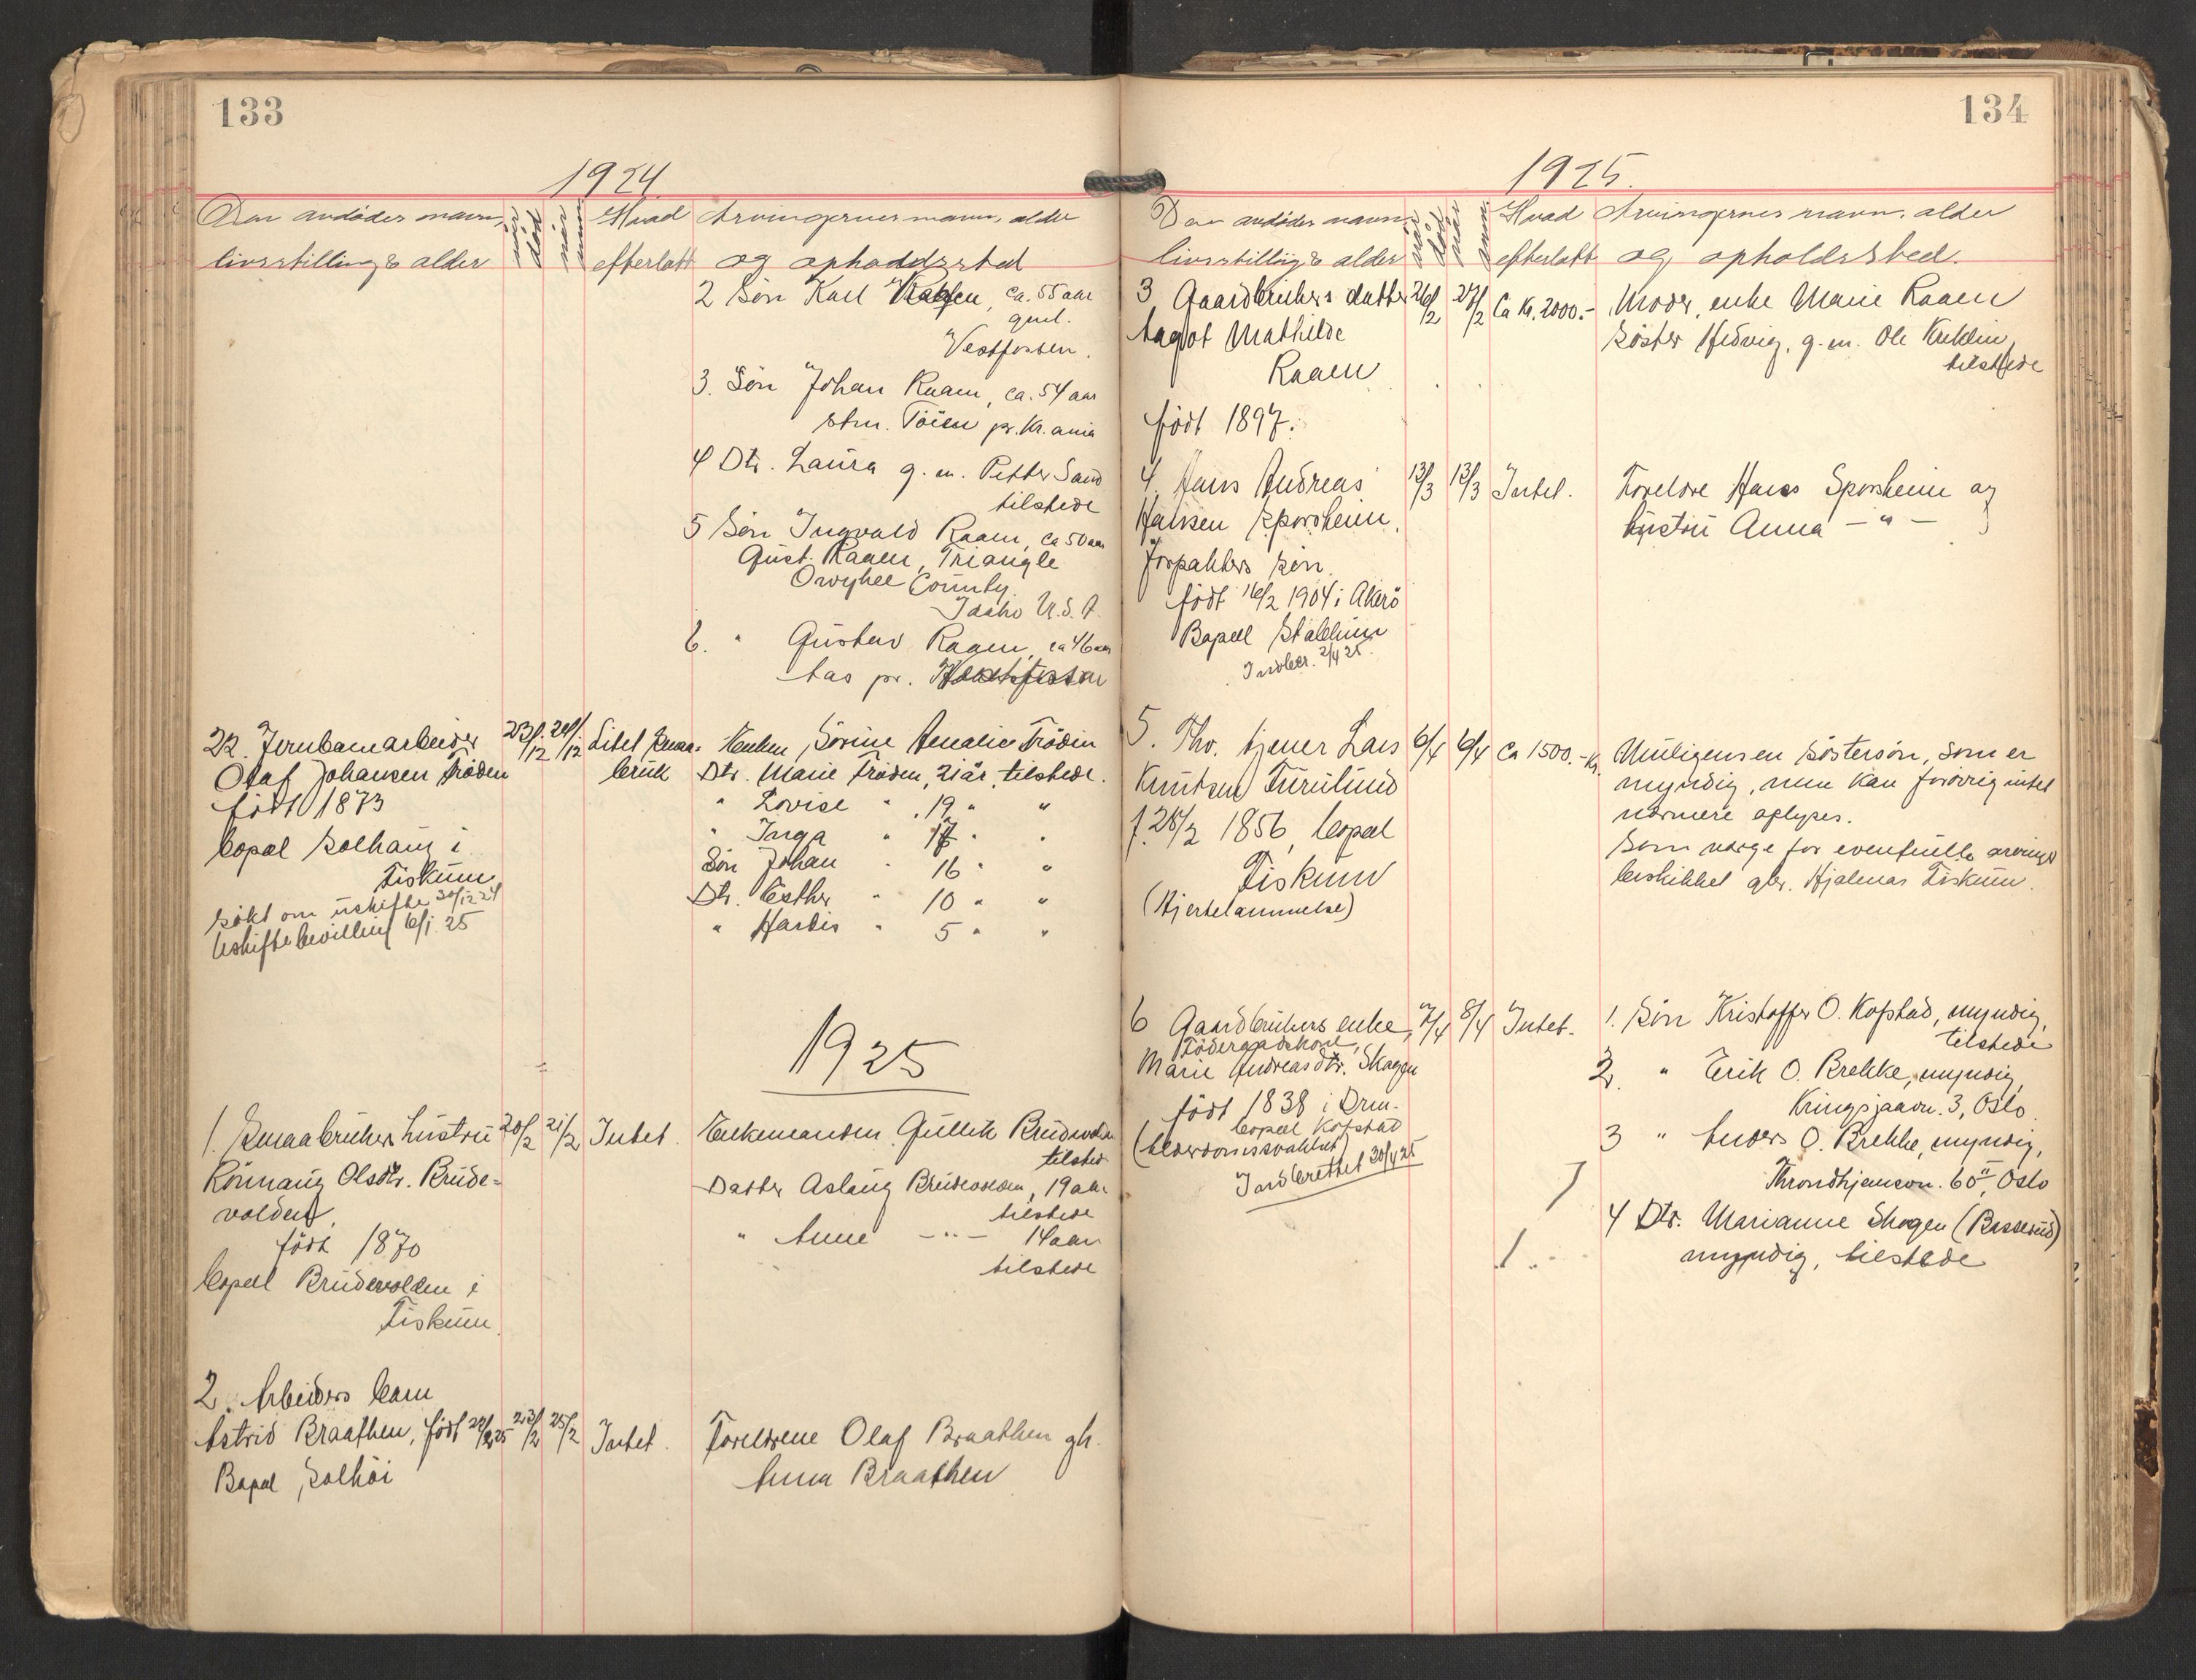 133
1924
Den avdødes navn,
livsstilling & alder
når død
når
Hvad
efterlatt
Arvingernes navn, alder
og opholdssted
2 Søn Karl Raaen, ca. 55 aar
Vestfossen.
3. Søn Johan Raaen, ca. 54 aar
stm. Töien pr. Kr.ania
4 Dtr. Laura g. m. Petter Sand
tilstede
5 Søn Ingvald Raaen, ca 50 aar
Gust. Raaen, Triangle
Owyhee County.
Idaho U.S.A.
6. " Gustav Raaen, ca 46 aar
Aas pr.
22. Jernbanearbeider
Olaf Johansen Fröden
født 1873
bopæl Solhaug i
Fiskum
søkt om uskifte 30/12 24
Uskiftebevilling 6/1 25
23/12
24/12
Litet smaa-
bruk
Enken, Sørine Amalie Frödin
Dtr. Marie Fröden, 21 år, tilstede.
" Lovise " 19 " "
" Inga " 17 " "
Søn Johan " 16 " "
Dtr. Esther " 10 " "
" Hardis " 5 " "
1925
1. Smaabrukers hustru
Rönnaug Olsdtr. Brude-
volden,
født 1870
bopæl Brudevolden i
Fiskum
20/2
21/2
Intet.
Enkemanden Gullik Brudevolden
tilstede
Datter Aslaug Brudevolden, 19 aar
tilstede
" Anne - " - 14 aar
tilstede
2. Arbeiders barn
Astrid Braathen, født 22/2 25
Bopæl Solhöi
23/2
25/2
Intet.
Foreldrene Olaf Braathen og h.
Anna Braathen
134
1925.
Den avdødes navn,
livsstilling & alder
når død
når
Hvad
efterlatt
Arvingernes navn, alder
og opholdssted.
3 Gaardbrukers datter
Aagot Mathilde
Raaen
født 1897.
26/2
27/2
Ca kr. 2000.-
Moder, enke Marie Raaen
Søster Hedvig, g. m. Ole Kreklin,
tilstede
4. Hans Andreas
Hansen Sporsheim,
forpakters søn.
født 16/2 1904 i Akerö
Bopæl Stablum
Indber. 2/4 25.
13/3
13/3
Intet.
Foreldre Hans Sporsheim og
hustru Anna - " -
5. Fhv. tjener Lars
Knutsen Furulund
f. 28/2 1856, bopæl
Fiskum
(Hjertelammelse)
6/4
6/4
Ca 1500.- kr.
Muligens en søstersøn, som er
myndig, men kan forøvrig intet
nærmere oplyses.
Som verge for eventuelle arvinger
beskikket gbr. Hjalmar Fiskum.
6 Gaardbrukers enke,
Föderaadskone,
Marie Andreasdtr. Skagen
født 1838 i Drm.
bopæl Kopstad
(alderdomssvakhet)
Indberettet 30/4 25
7/4
8/4
Intet.
1. Søn Kristoffer O. Kopstad, myndig,
tilstede
2. " Erik O. Brekke, myndig,
Kringsjaavn. 3, Oslo.
3 " Anders O. Brekke, myndig,
Throndhjemsvn. 60 II, Oslo
4 Dtr. Marianne Skogen (Basserud)
myndig, tilstede